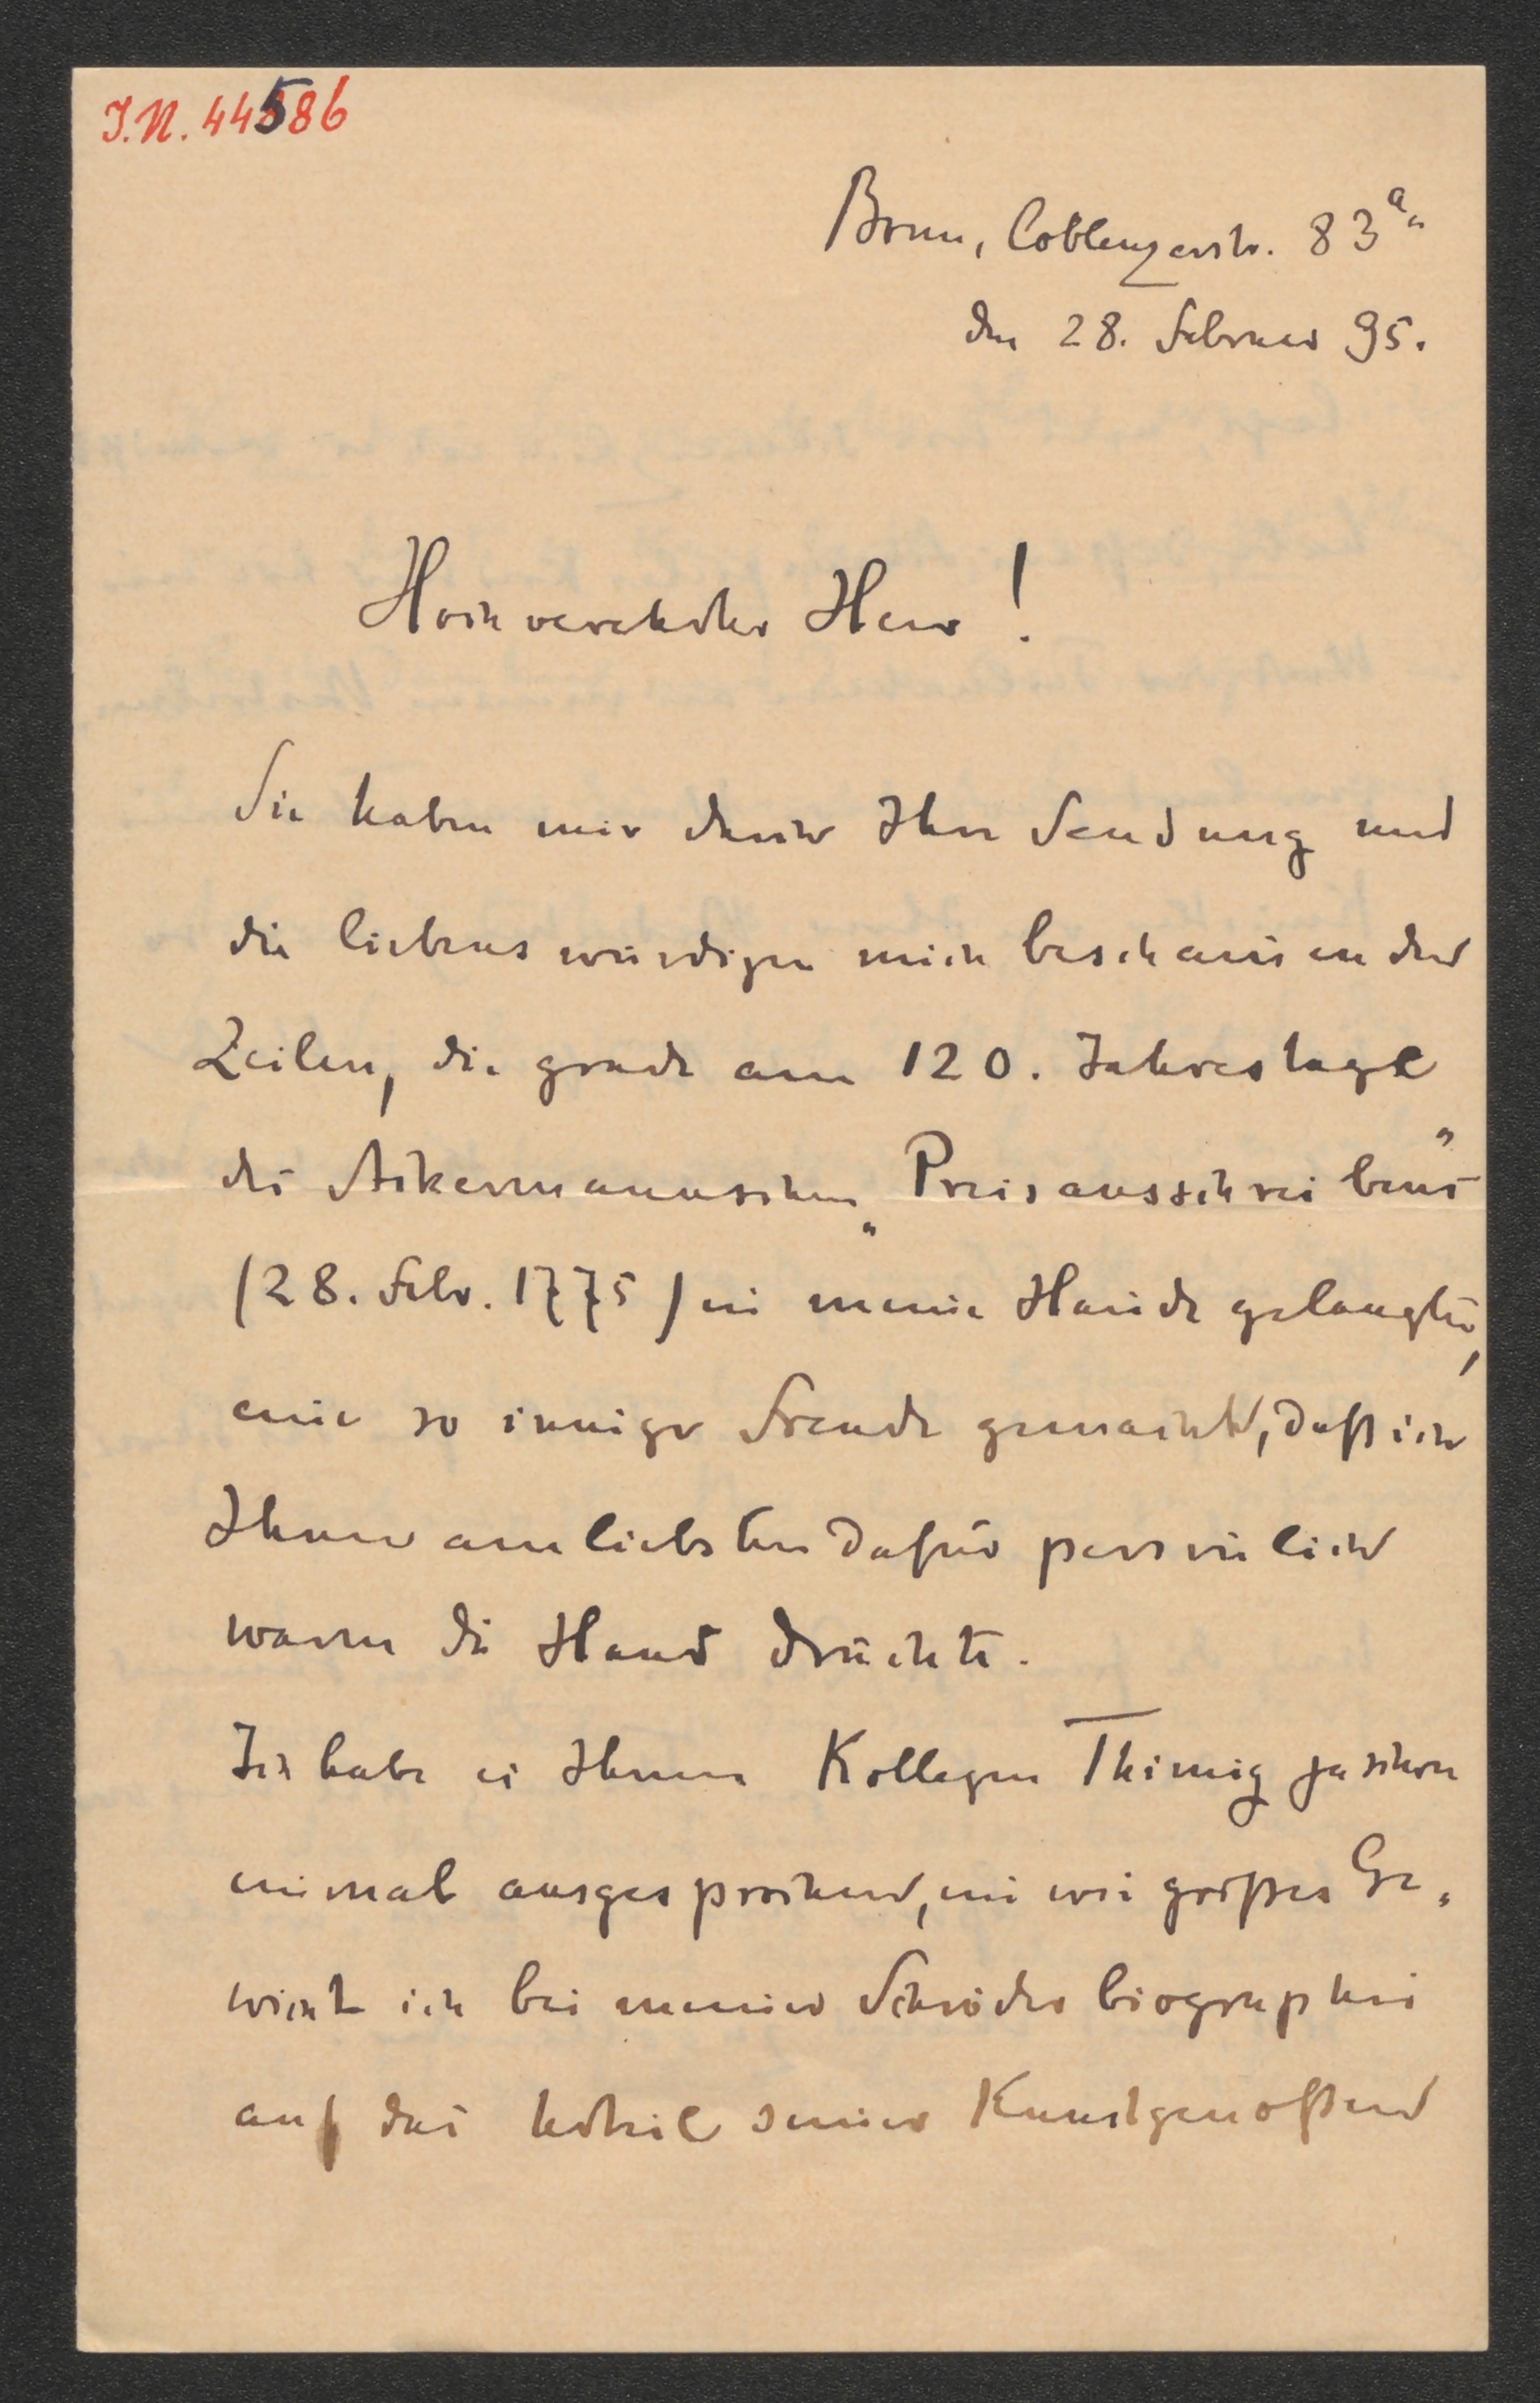 J.N. 44586
Bonn, Coblenzerstr. 83a.
den 28. Februar 95.
Hochverehrter Herr!
Sie haben mir durch Ihre Sendung und
die liebenswürdigen mich beschämenden
Zeilen, die grade am 120. Jahrestage
des Ackermannschen „Preisausschreibens"
(28. Febr. 1775) in meine Hände gelangten,
eine so innige Freude gemacht, daß ich
Ihnen am liebsten dafür persönlich
warm die Hand drückte.
Ich habe es Ihrem Kollegen Thimig ja schon
einmal ausgesprochen, ein wie großes Ge-
wicht ich bei meiner Schröderbiographie
auf das Urteil seiner Kunstgenoßen